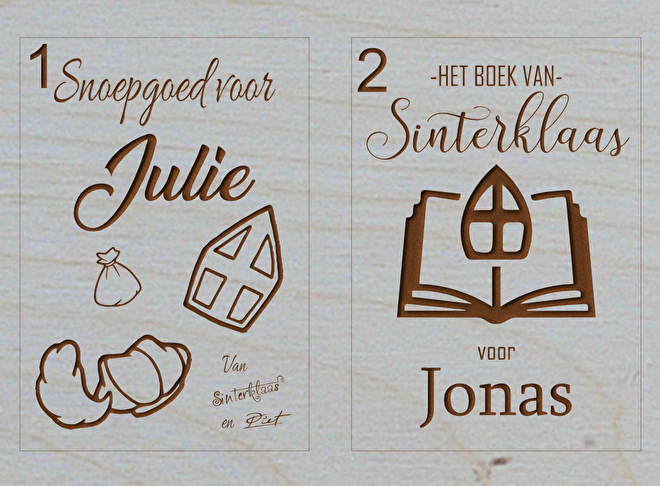 1
Snoepgoed voor
Julie
Van
Sinterklaas
en Piet
2
-HET BOEK VAN-
Sinterklaas
voor
Jonas